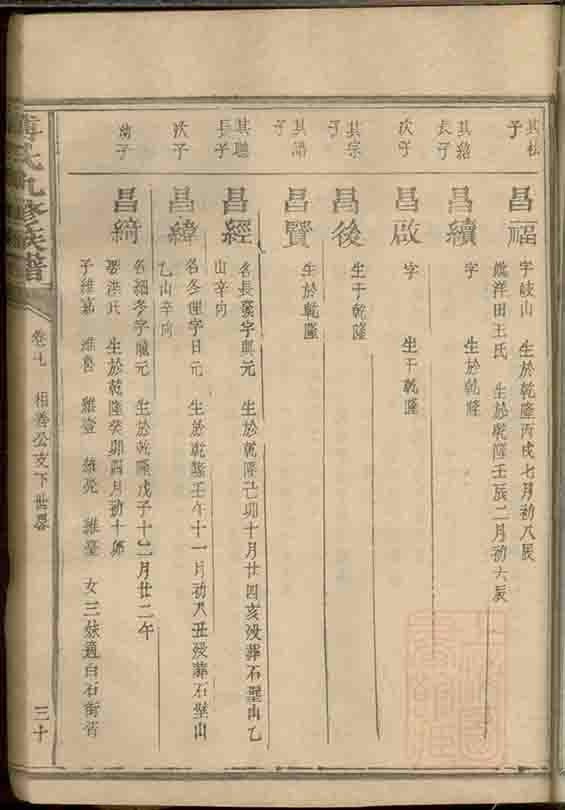 其松
子
昌福
字岐山 生於乾隆丙戌七月初八辰
娶洋田王氏 生於乾隆壬辰二月初六辰
其緒
長子
昌續
字 生於乾隆
次子
昌啟
字 生于乾隆
其宗
子
昌後
生于乾隆
其語
子
昌賢
生於乾隆
其聰
長子
昌經
名長 字興元 生於乾隆己卯十月廿四亥沒葬石壁山乙
山辛向
次子
昌緯
名冬 字日元 生於乾隆壬午十一月初八丑沒葬石壁山
乙山辛向
幼子
昌綺
名細冬字 元 生於乾隆戊子十二月廿二午
娶洪氏 生於乾隆癸卯四月初十卯
子維嘉 維 維壹 維亮 維臺 女三妹適白石街
氏九修族譜
卷七 相善公支下世畧 三十